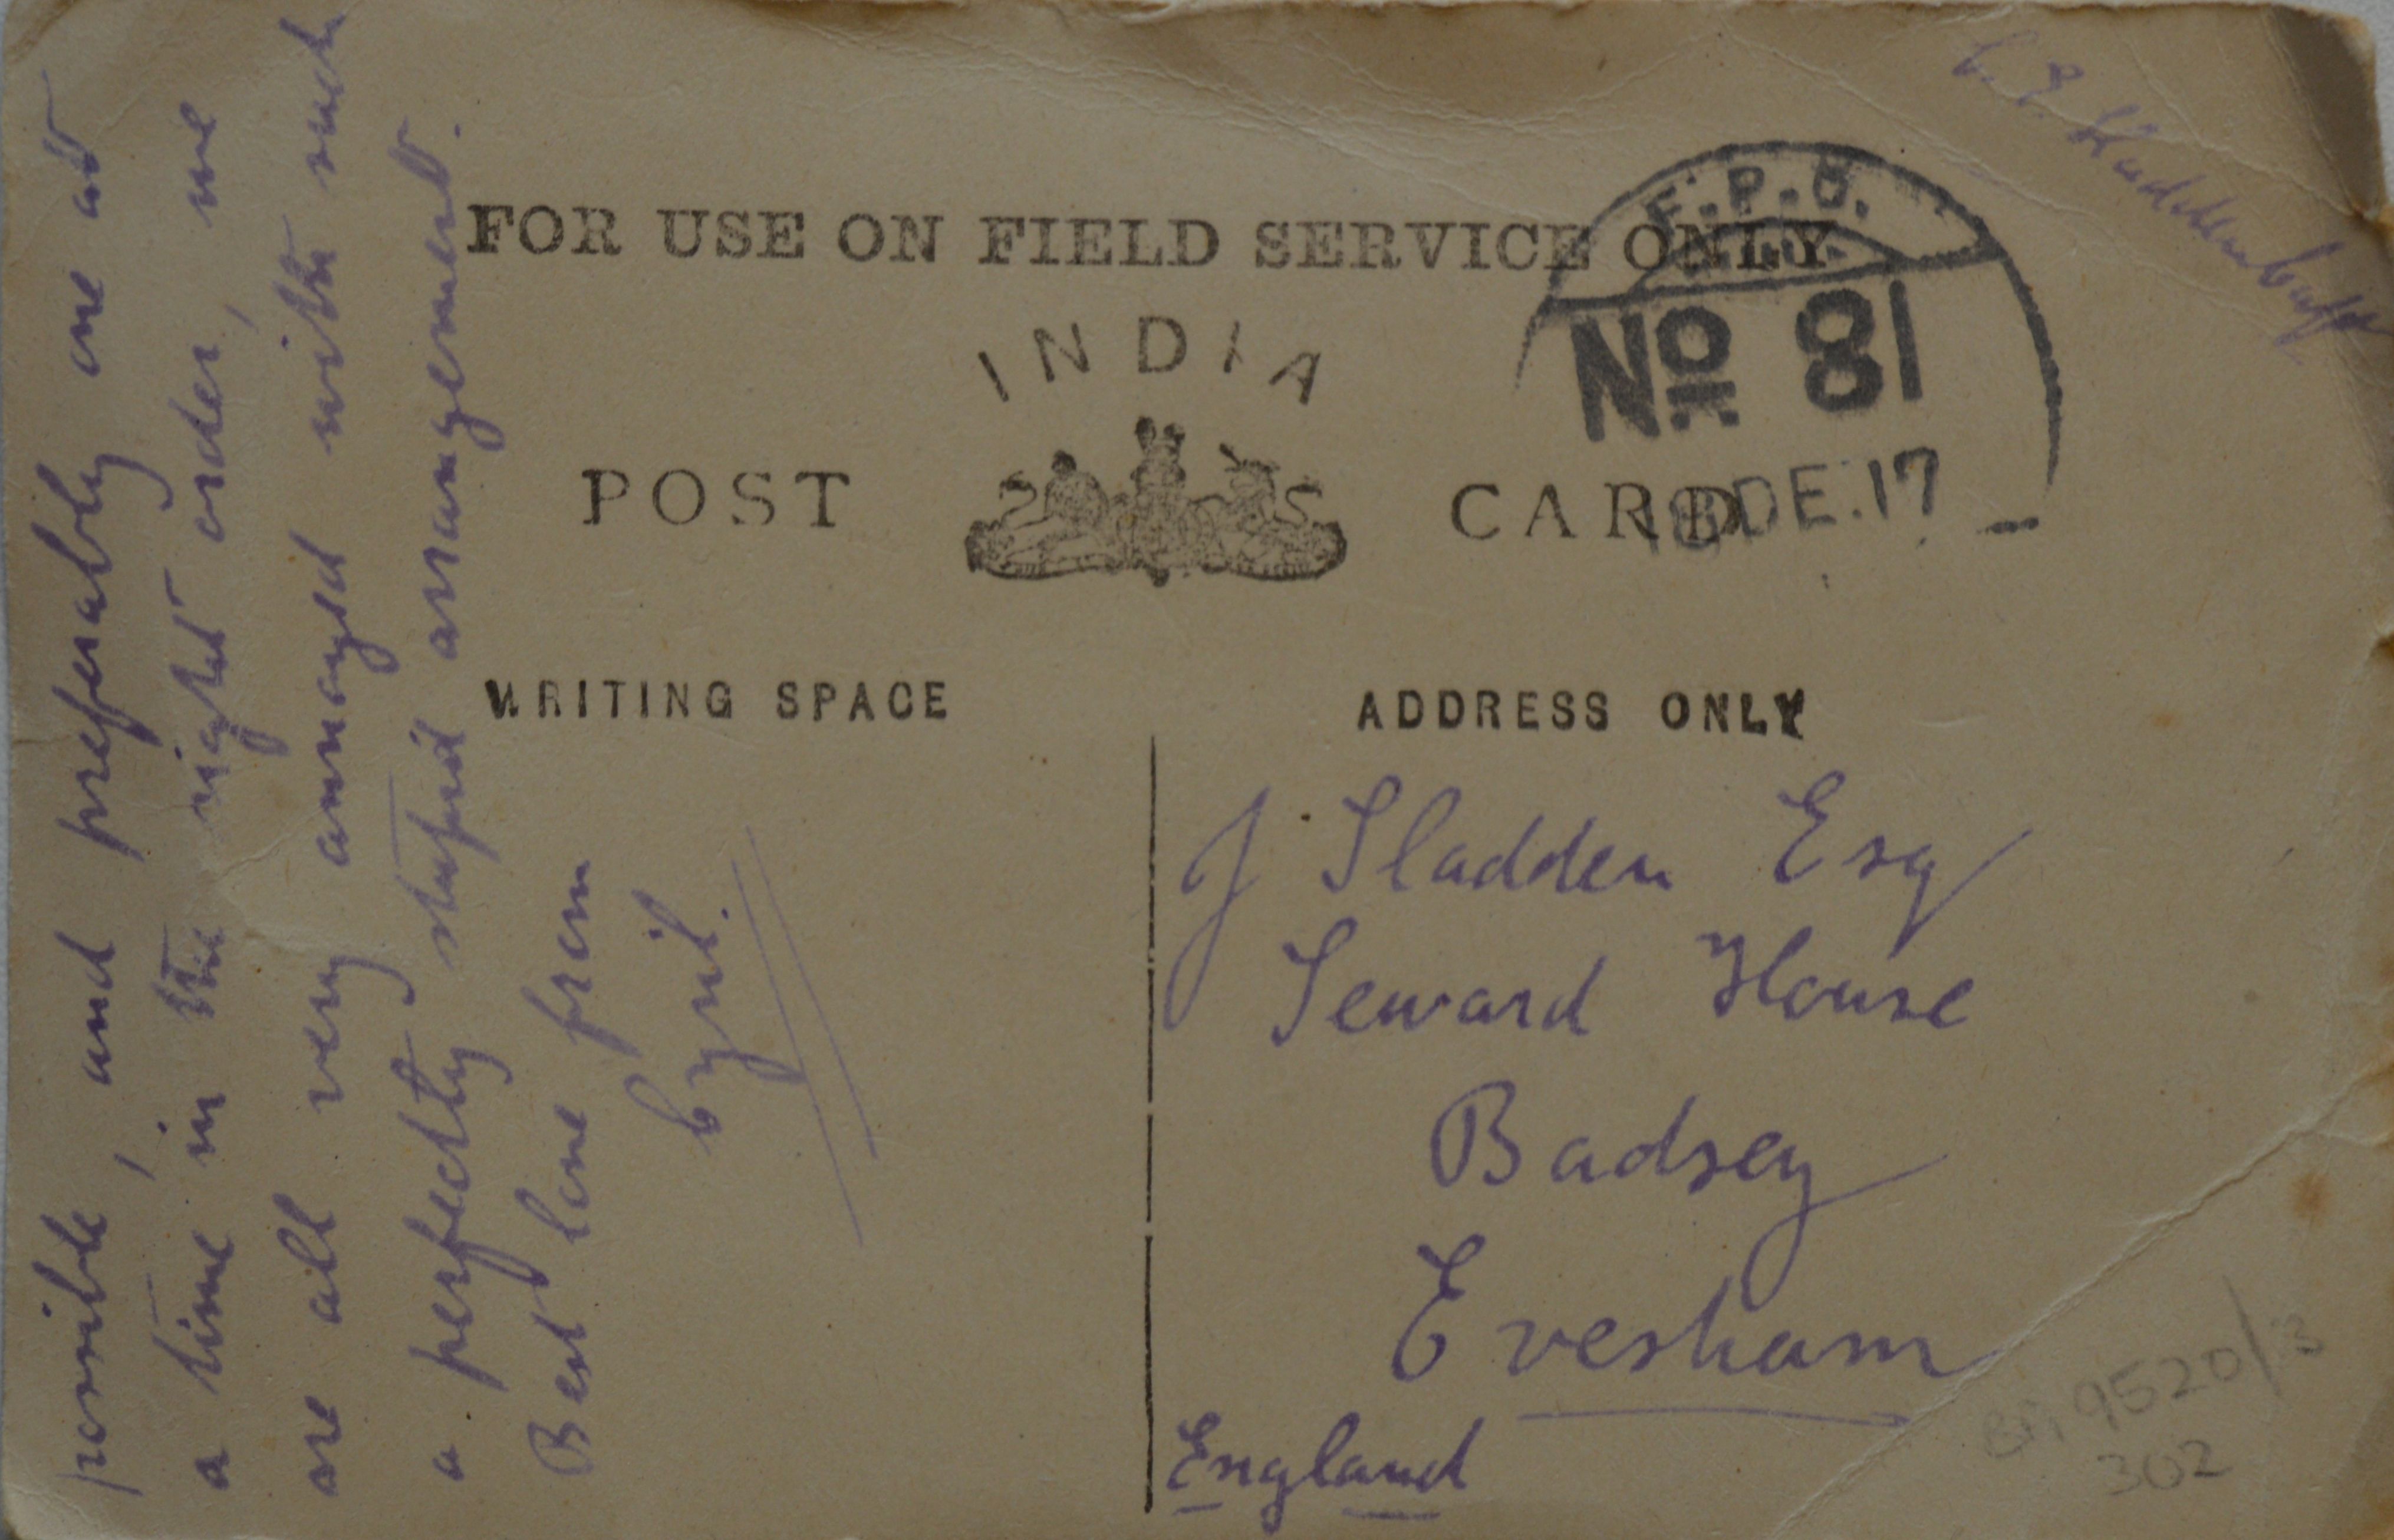 possible, and preferably one at
a time in the right order, we
are all very annoyed with such
a perfectly stupid arrangement.
Best love from
Cyril.
FOR USE ON FIELD SERVICE ONLY
INDIA
POST CARD
F.P.O.
No 81
18 DE.17
C. E. Sladden Capt
WRITING SPACE
ADDRESS ONLY
J Sladden Esq
Seward House
Badsey
Evesham
England
9520/3
302